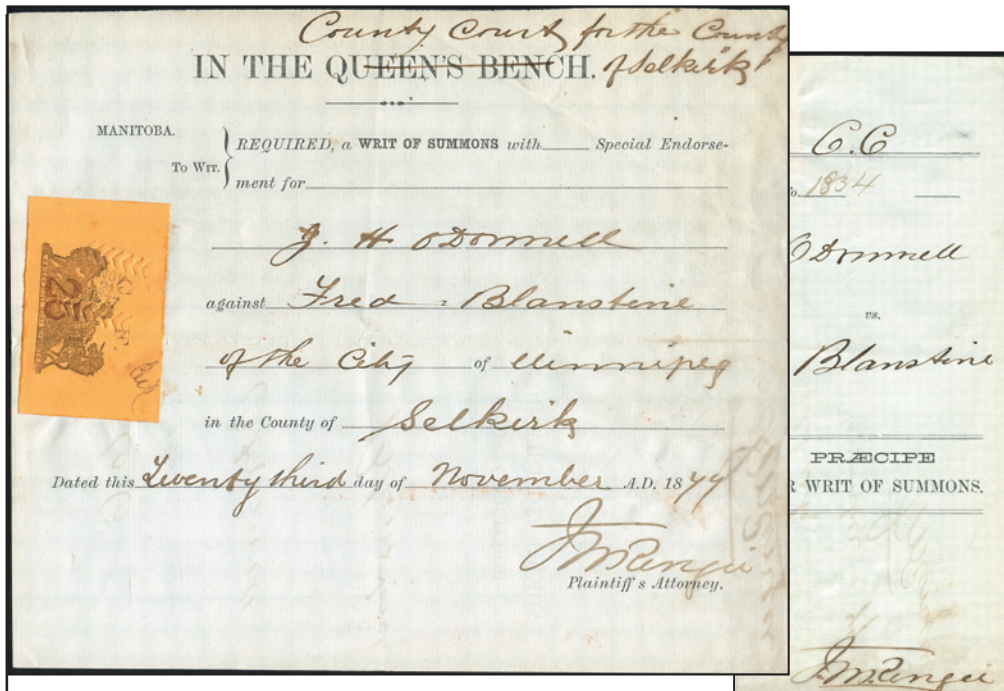 County Court for the County
IN THE QUEEN'S BENCH. of Selkirk
MANITOBA.
To Wit.
REQUIRED, a WRIT OF SUMMONS with Special Endorse-
ment for
J. H ODonnell
against Fred Blanstine
of the City of Winnipeg
in the County of Selkirk
Dated this Twenty third day of November A.D. 18
Plaintiff's Attorney.
25
C.C
No. 1834
ODonnell
vs.
Blanstine
PRÆCIPE
R WRIT OF SUMMONS.